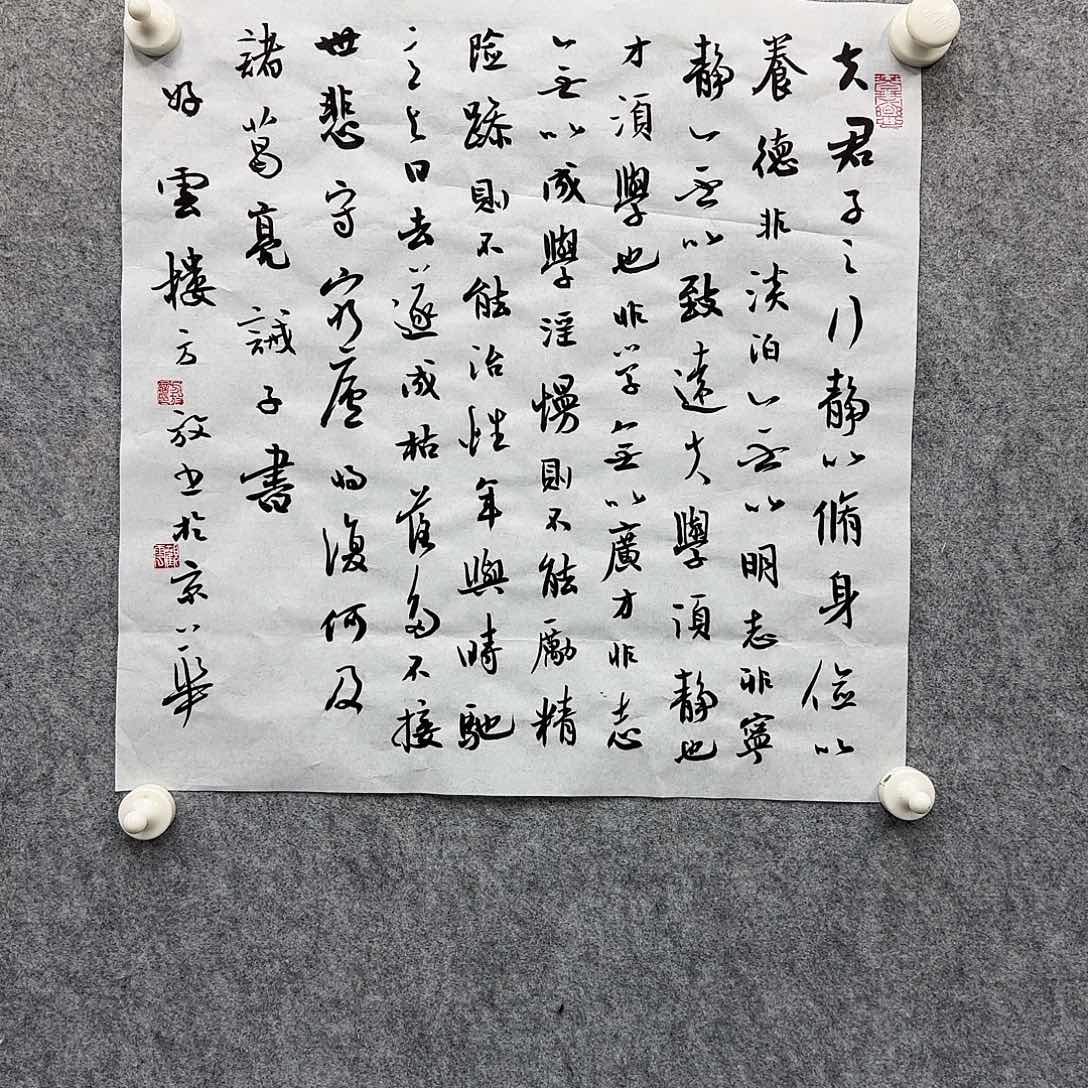 夫君子之行靜以脩身儉以
養德非淡泊無以明志非寧
靜無以致遠夫學須靜也
才須學也非學無以廣才非志
無以成學淫慢則不能勵精
险躁則不能治性年與時馳
意與日去遂成枯落多不接
世悲守窮廬將復何及
諸葛亮誡子書
好雲樓方放书於京華